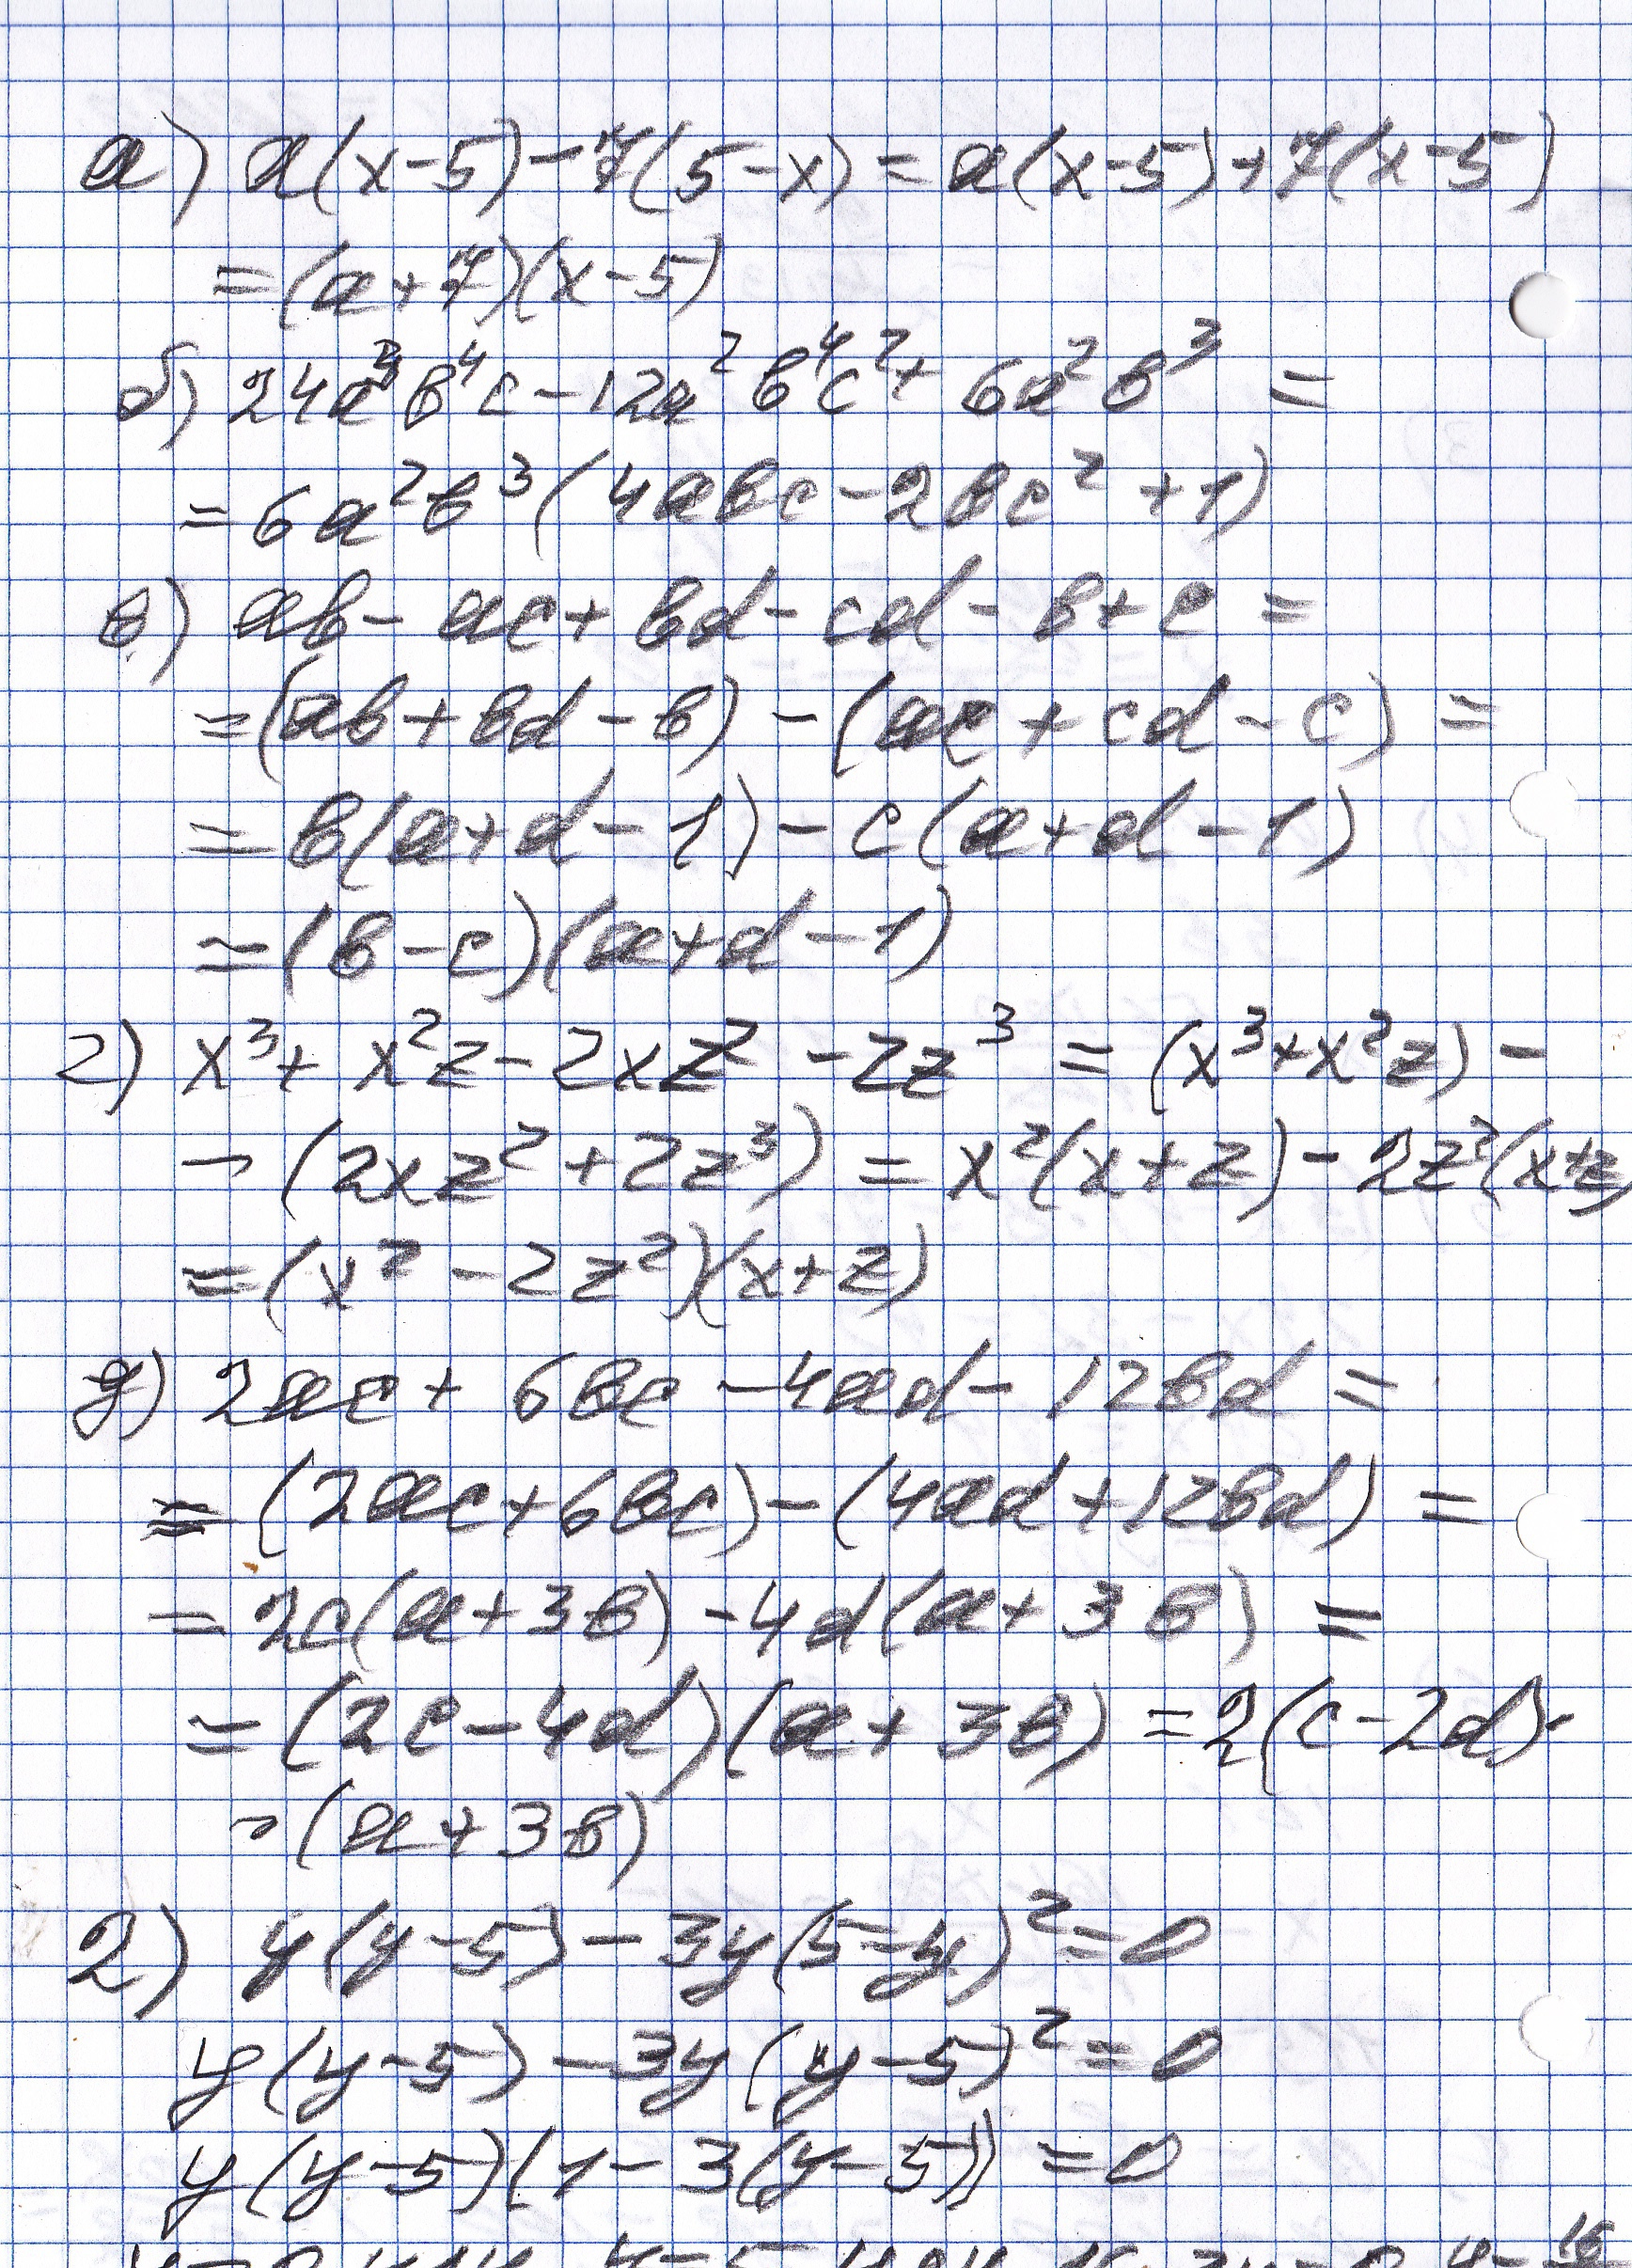 а) a(x-5)-7(5-x)=a(x-5)+7(x-5)
=(a+7)(x-5)
б) 24a³b⁴c-12a²b⁴c²+6a²b³=
=6a²b³(4abc-2bc²+1)
в) ab-ac+bd-cd-b+c=
=(ab+bd-b)-(ac+cd-c)=
=b(a+d-1)-c(a+d-1)
=(b-c)(a+d-1)
г) x³+x²z-2xz²-2z³=(x³+x²z)-
-(2xz²+2z³)=x²(x+z)-2z²(x+z)
=(x²-2z²)(x+z)
д) 2ac+6bc-4ad-12bd=
=(2ac+6bc)-(4ad+12bd)=
=2c(a+3b)-4d(a+3b)=
=(2c-4d)(a+3b)=2(c-2d)·
·(a+3b)
2) y(y-5)-3y(5-y)²=0
y(y-5)-3y(y-5)²=0
y(y-5)(1-3(y-5))=0